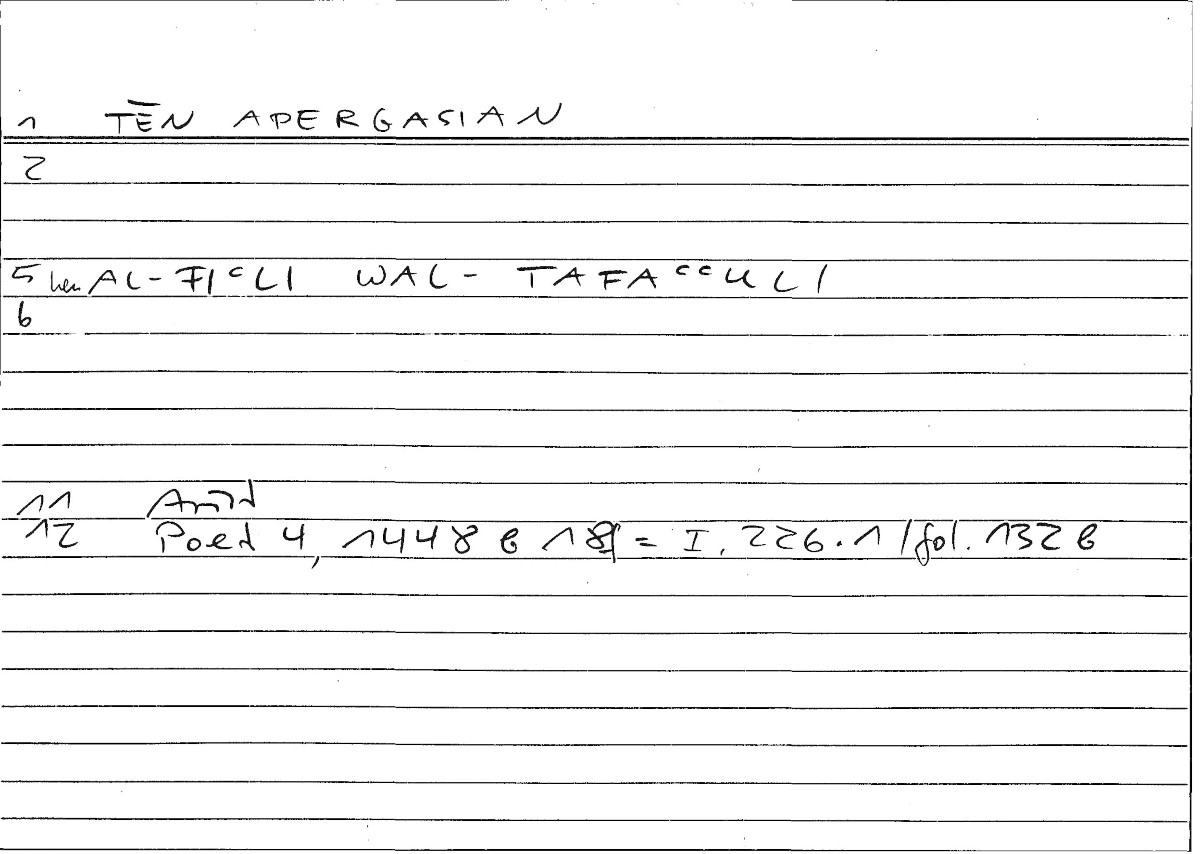 1 TĒN APERGASIAN
2
5 hen AL-FIᶜLI WAL-TAFAᶜᶜULI
6
11 Arist
12 Poet 4, 1448 b 18f = I, 226.1 / fol. 132 b